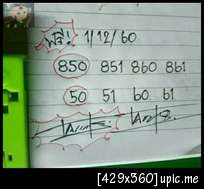 ฟรี! 1/12/60
850 851 860 861
50 51 60 61
[429x560] upic.me